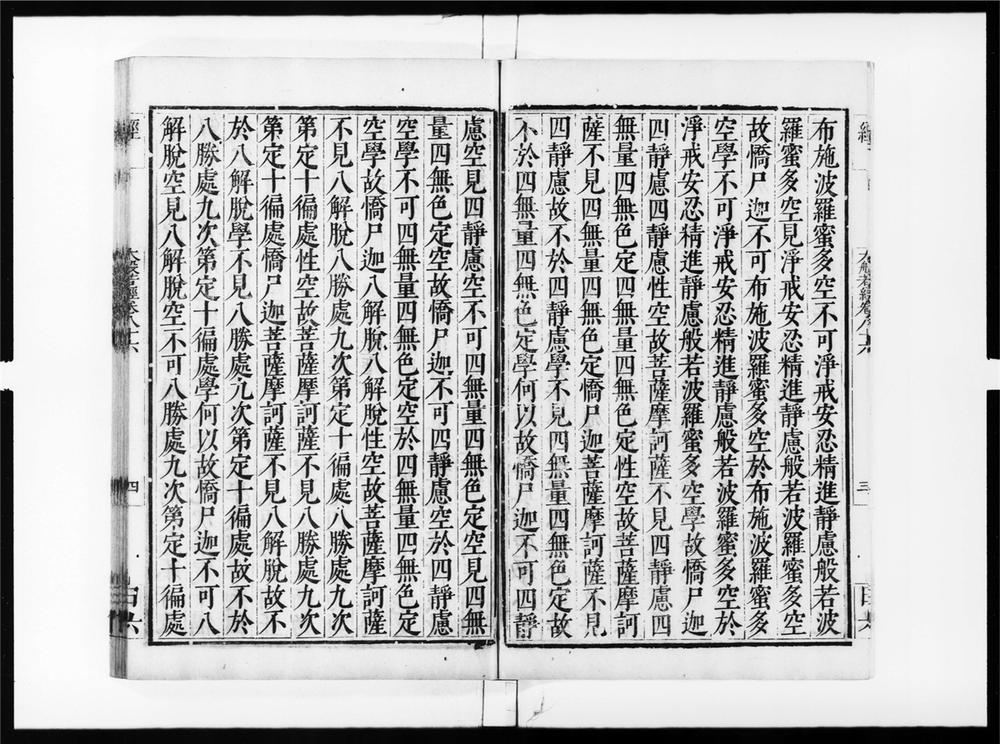 經 大般若經卷八十六 三
布施波羅蜜多空不可淨戒安忍精進靜慮般若波
羅蜜多空見淨戒安忍精進靜慮般若波羅蜜多空
故憍尸迦不可布施波羅蜜多空於布施波羅蜜多
空學不可淨戒安忍精進靜慮般若波羅蜜多空於
淨戒安忍精進靜慮般若波羅蜜多空學故憍尸迦
四靜慮四靜慮性空故菩薩摩訶薩不見四靜慮四
無量四無色定四無量四無色定性空故菩薩摩訶
薩不見四無量四無色定憍尸迦菩薩摩訶薩不見
四靜慮故不於四靜慮學不見四無量四無色定故
不於四無量四無色定學何以故憍尸迦不可四靜
慮空見四靜慮空不可四無量四無色定空見四無
量四無色定空故憍尸迦不可四靜慮空於四靜慮
空學不可四無量四無色定空於四無量四無色定
空學故憍尸迦八解脫八解脫性空故菩薩摩訶薩
不見八解脫八勝處九次第定十徧處八勝處九次
第定十徧處性空故菩薩摩訶薩不見八勝處九次
第定十徧處憍尸迦菩薩摩訶薩不見八解脫故不
於八解脫學不見八勝處九次第定十徧處故不於
八勝處九次第定十徧處學何以故憍尸迦不可八
解脫空見八解脫空不可八勝處九次第定十徧處
經 大般若經卷八十六 四